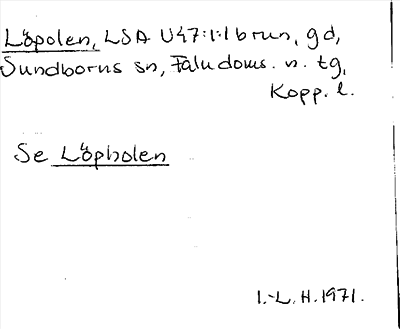 Löpolen, LSA U47:1:1 brun, gd,
Sundborns sn, Faludoms. n. tg,
Kopp. l.
Se Löpholen
I.-L. H. 1971.